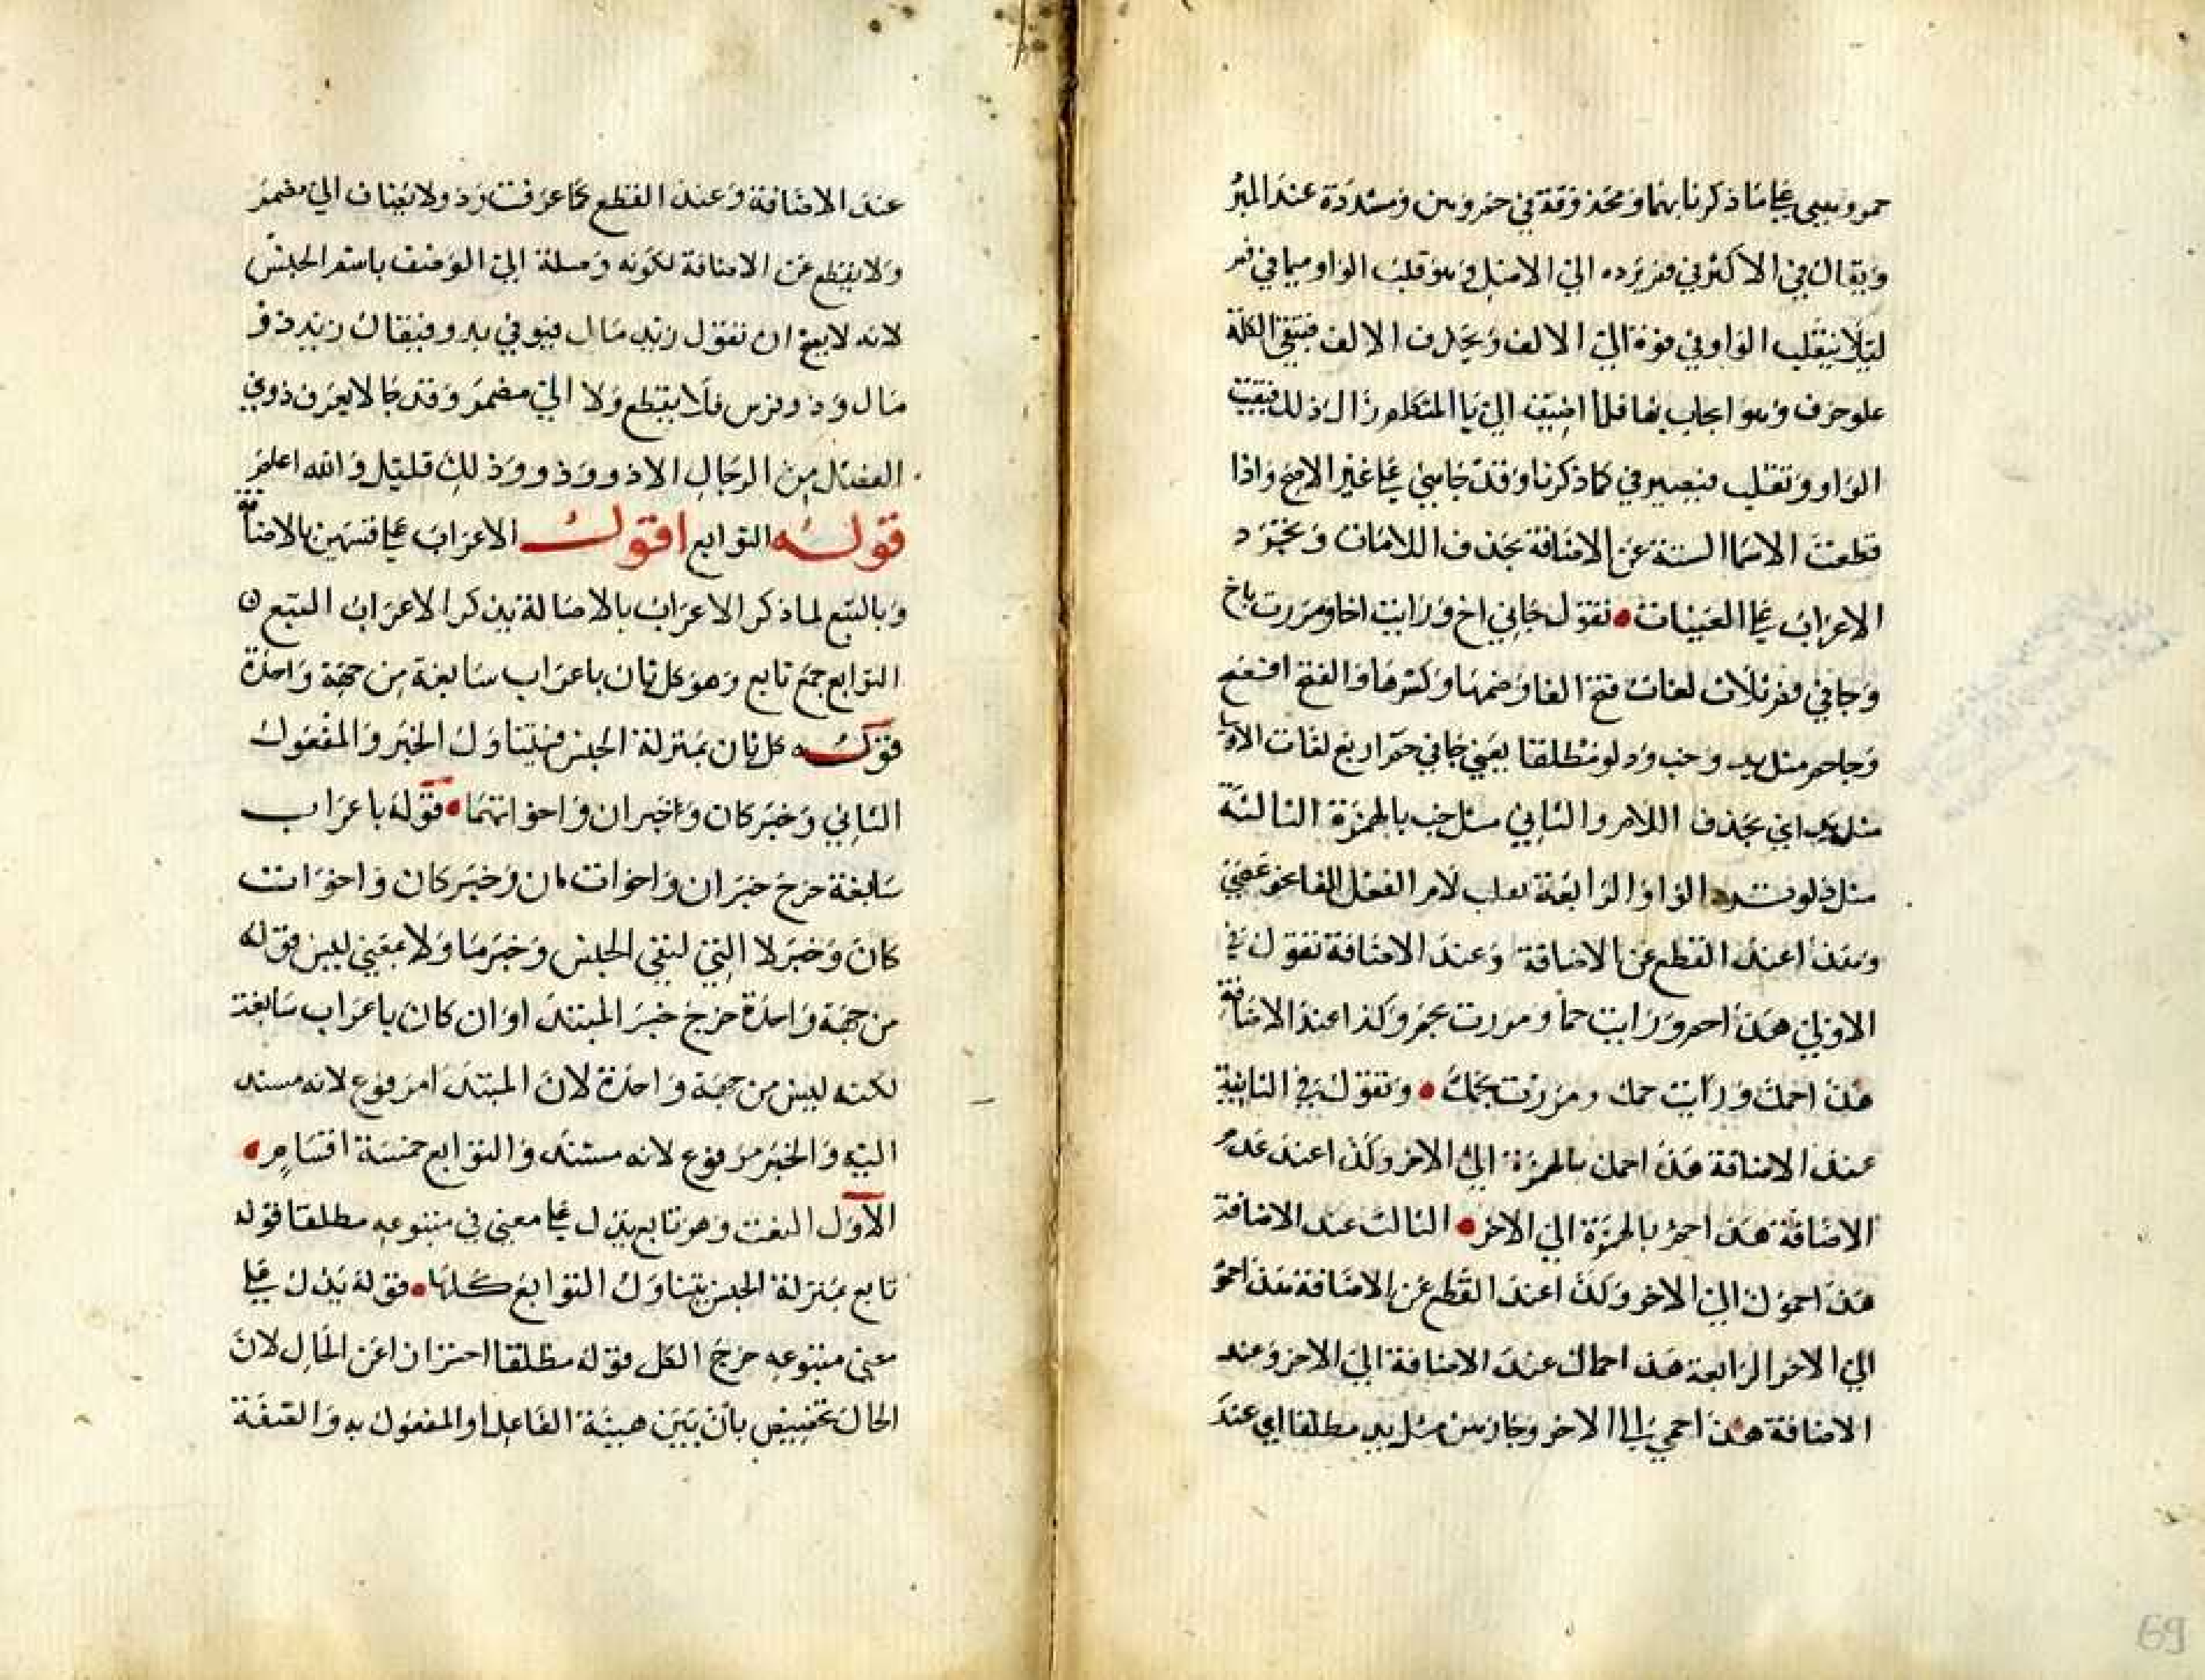 حمو وهنى على ما ذكرنا بهما ومحذوفة في حمو وهن ومشددة عند المبرد
ويقال في الاكثر في فم يرده الى الاصل وهو قلب الواو ميما في فم
ليلا ينقلب الواو في فوه الى الالف ويحذف الالف فيبقى الكلمة
على حرف وهو اجحاف بها فلما اضيف الى يا المتكلم زال ذلك فبقيت
الواو وتقلب فيصير في كما ذكرنا وقد جا مي على غير الاصح واذا
قطعت الاسما الستة عن الاضافة بحذف اللامات ويجرد
الاعراب على العينات تقول جاني اخ ورايت اخا ومررت باخ
وجا في فم ثلاث لغات فتح الفا وضمها وكسرها والفتح افصح
وجا حم مثل يد وخب ودلو مطلقا يعني جا في حم اربع لغات الاولى
مثل يد اي بحذف اللام والثاني مثل خب بالهمزة الثالثة
مثل دلو الواو الرابعة لام الفعل الفا نحو عصى
وهذا عند القطع عن الاضافة وعند الاضافة تقول في
الاولى هذا حم ورايت حما ومررت بحم وكذا عند الاضافة
هذا حمك ورايت حمك ومررت بحمك وتقول في الثانية
عند الاضافة هذا حمك بالهمزة الى الاخر وكذا عند عدم
الاضافة هذا حمؤ بالهمزة الى الاخر الثالث عند الاضافة
هذا حموك الى الاخر وكذا عند القطع عن الاضافة هذا حمو
الى الاخر الرابعة هذا حماك عند الاضافة الى الاخر وعند
الاضافة هذا حمي الى الاخر وجا هن مثل يد مطلقا اي عند
69
عند الاضافة وعند القطع كما عرفت وذو لا يضاف الى مضمر
ولا يقطع عن الاضافة لكونه وصلة الى الوصف باسم الجنس
لانه لا يصح ان تقول زيد مال فيوفي بذو فيقال زيد ذو
مال وذو فرس فلا يقطع ولا الى مضمر وقد جا لا يعرف ذوي
الفضل من الرجال الا ذووه وذلك قليل والله اعلم
قوله التوابع اقول الاعراب على قسمين بالاضافة
وبالتبع لما ذكر الاعراب بالاصالة يذكر الاعراب التبع
التوابع جمع تابع وهو كل ثان باعراب سابقه من جهة واحدة
قوله كل ثان بمنزلة الجنس فيتناول الخبر والمفعول
الثاني وخبر كان وخبر ان واخواتهما قوله باعراب
سابقه خرج خبر ان واخوات ان وخبر كان واخوات
كان وخبر لا التي لنفي الجنس وخبر ما ولا بمعنى ليس قوله
من جهة واحدة خرج خبر المبتدا وان كان باعراب سابقه
لكنه ليس من جهة واحدة لان المبتدا مرفوع لانه مسند
اليه والخبر مرفوع لانه مسند والتوابع خمسة اقسام
الاول النعت وهو تابع يدل على معنى في متبوعه مطلقا قوله
تابع بمنزلة الجنس يتناول التوابع كلها قوله يدل على
معنى متبوعه خرج الكل قوله مطلقا احترازا عن الحال لان
الحال تخصيص بان يبين هيئة الفاعل او المفعول به والصفة